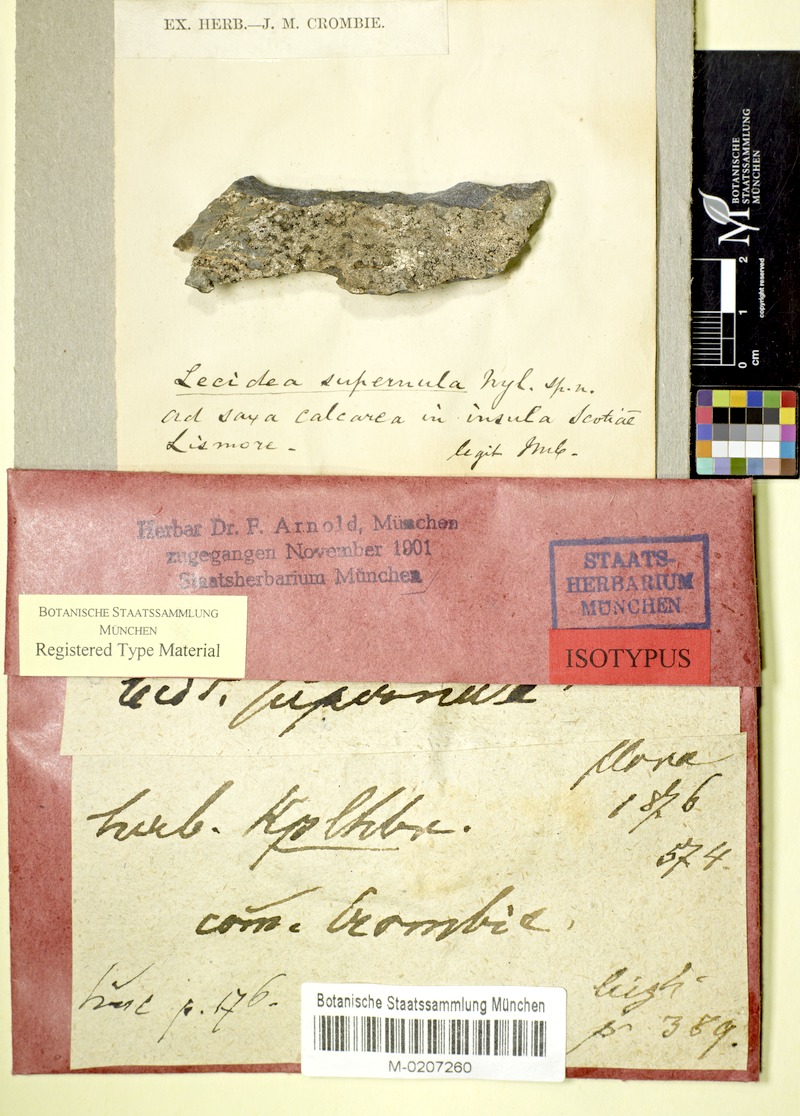 EX. HERB.—J. M. CROMBIE.
BOTANISCHE
STAATSSAMMLUNG
MÜNCHEN
0 1 2
cm
copyright reserved
Lecidea supernula Nyl. sp.n.
ad saxa calcarea in insula Scotiae
Lismore - legit
Herbar Dr. F. Arnold, München
zugegangen November 1901
Staatsherbarium München
STAATS-
HERBARIUM
MÜNCHEN
BOTANISCHE STAATSSAMMLUNG
MÜNCHEN
Registered Type Material
ISOTYPUS
supernula
flora
1876
herb. Kplhbr.
574.
com. Crombie.
p. 176.
Leigh.
p 359.
Botanische Staatssammlung München
M-0207260